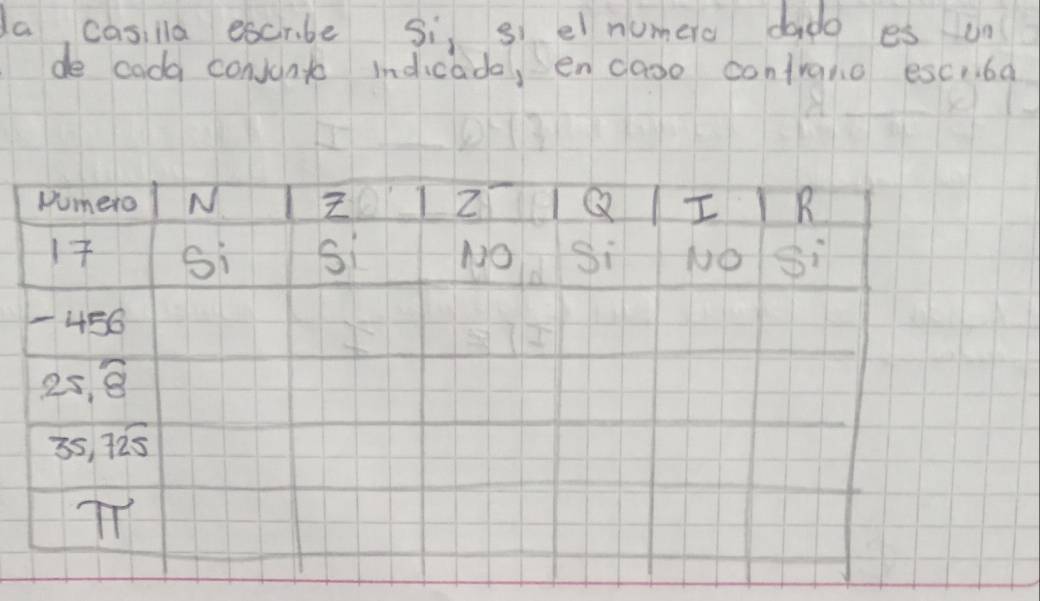 da casilla escribe Si, si el numero dado es un
de cada conjunto indicado, en caso contrario escriba
Numero N Z Z⁻ Q I R
17 Si Si NO Si NO Si
-456
25,8̂
35,725̅
π